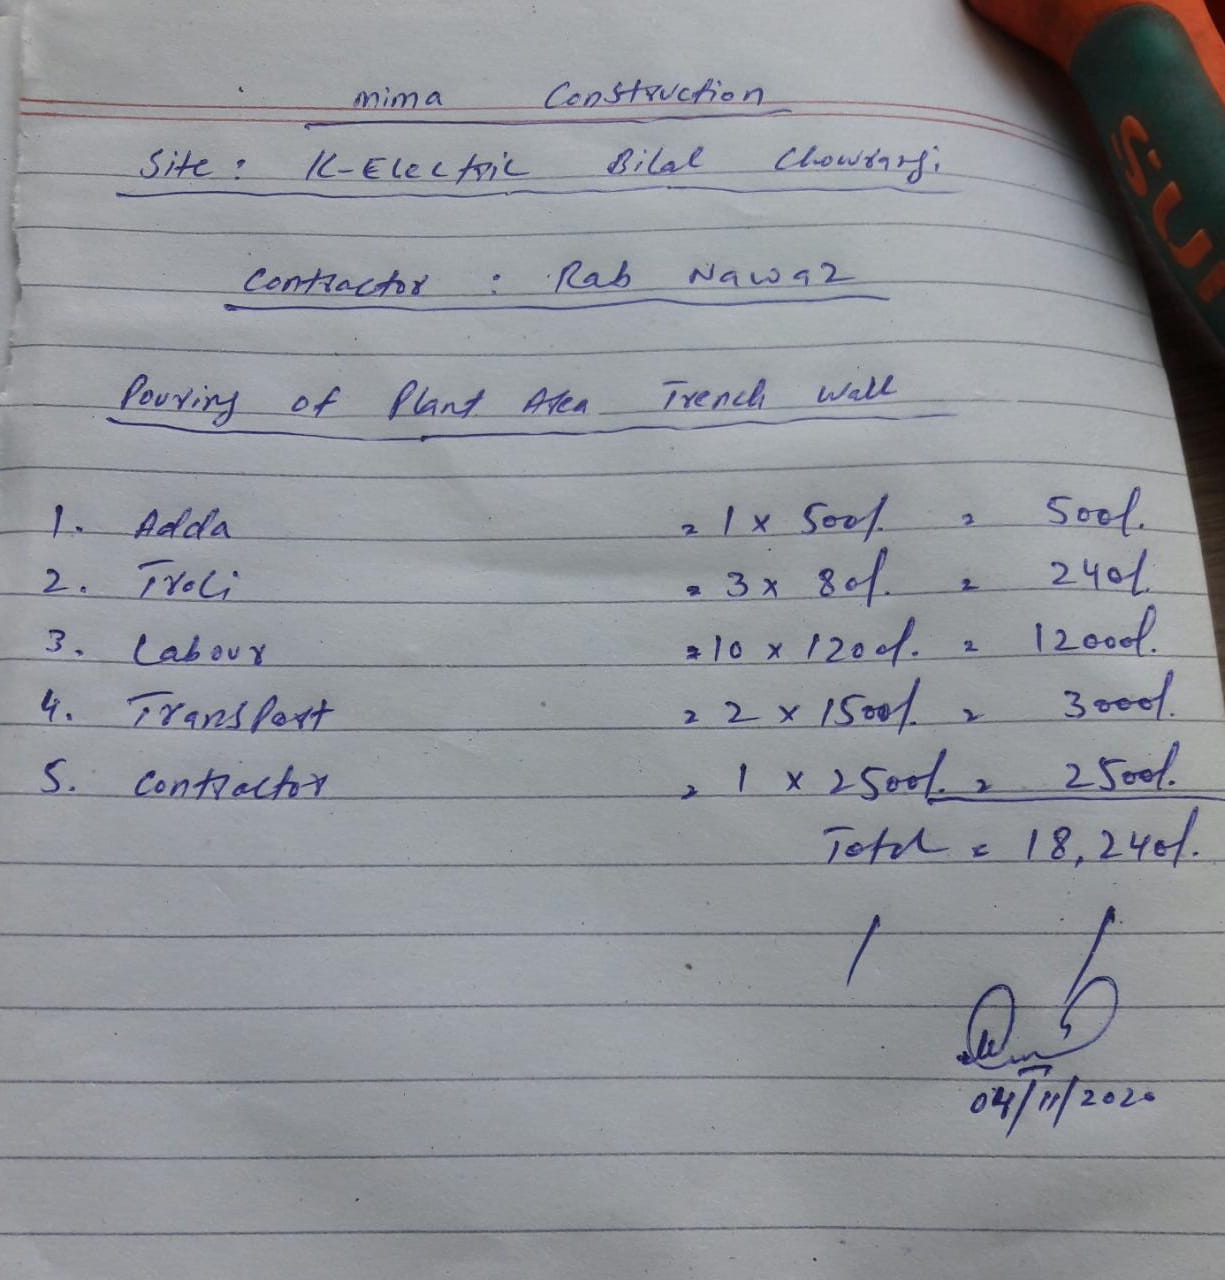 mima Construction
Site: K-Electric Bilal Chowrangi
Contractor : Rab Nawaz
Pouring of Plant Area Trench Wall
1. Adda = 1 x 500/. = 500/.
2. Troli = 3 x 80/. = 240/.
3. Labour = 10 x 1200/. = 12000/.
4. Transport = 2 x 1500/. = 3000/.
5. Contractor = 1 x 2500/. = 2500/.
Total = 18,240/.
04/11/2020